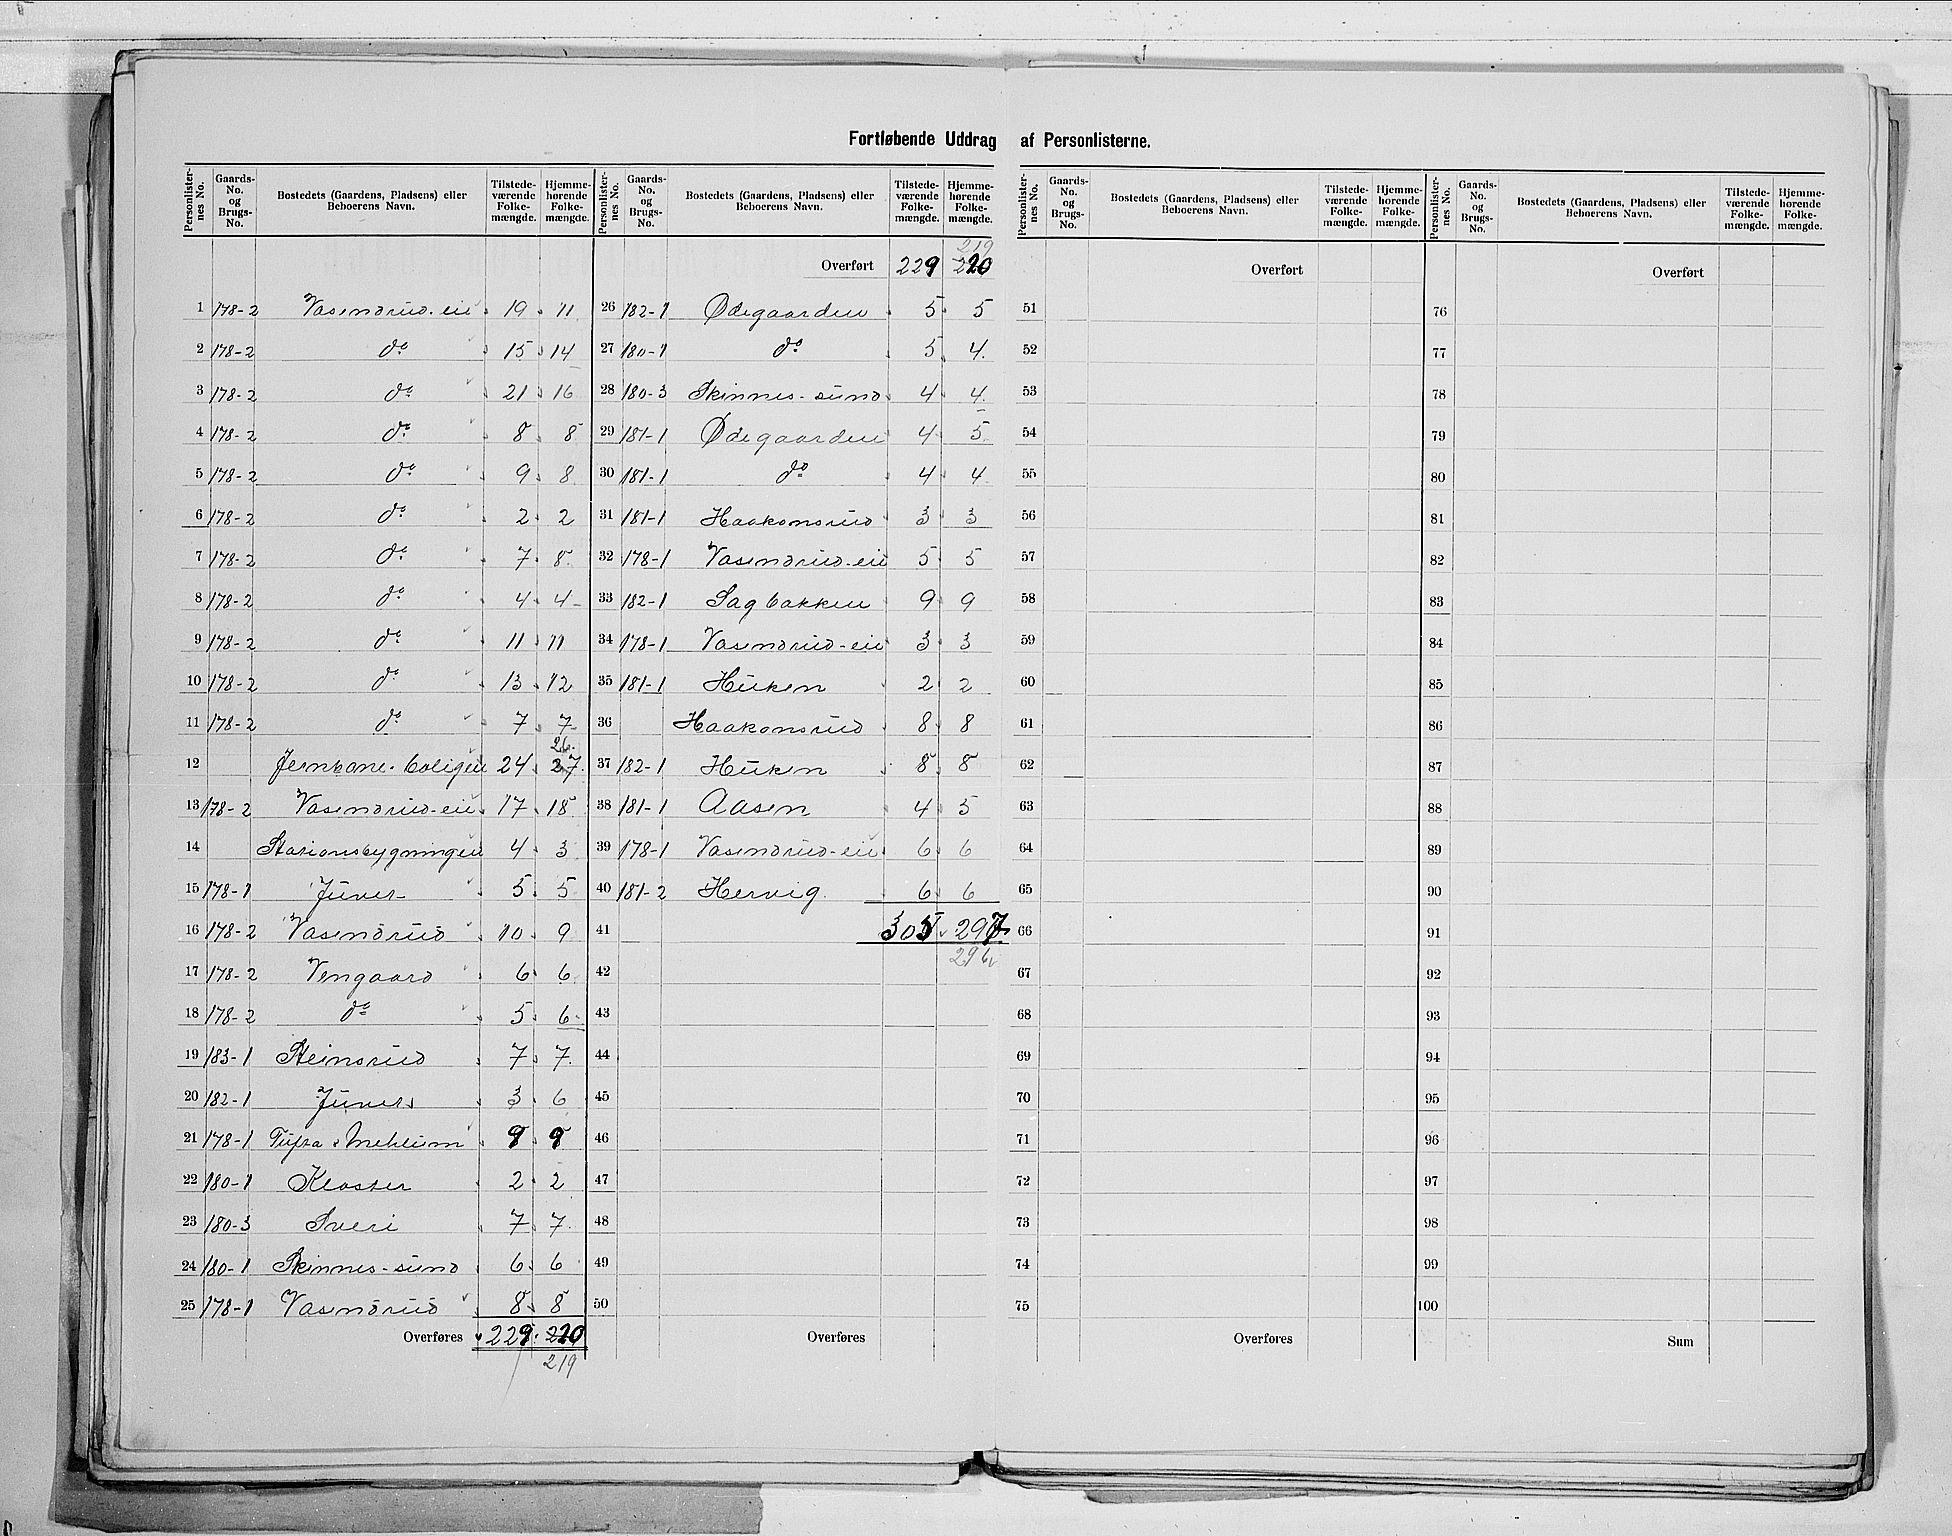 Fortløbende Uddrag af Personlisterne.
Personlister-nes No. | Gaards-No. og Brugs-No. | Bostedets (Gaardens, Pladsens) eller Beboerens Navn. | Tilstede-værende Folke-mængde. | Hjemme-hørende Folke-mængde.
1 178-2 Vasendrud-eie 19 11
2 178-2 do 15 14
3 178-2 do 21 16
4 178-2 do 8 8
5 178-2 do 9 8
6 178-2 do 2 2
7 178-2 do 7 8
8 178-2 do 4 4
9 178-2 do 11 11
10 178-2 do 13 12
11 178-2 do 7 7
26
12 24 27
13 178-2 Vasendrud-eie 17 18
14 Stationsbygningen 4 3
15 178-1 Juver 5 5
16 178-2 Vasendrud 10 9
17 178-2 Vengaard 6 6
18 178-2 do 5 6
19 183-1 Steinsrud 7 7
20 182-1 Juver 3 6
21 178-1 Tufta Mehlum
22 180-1 Kloster 2 2
23 180-3 Sveri 7 7
24 180-1 Skinnes-sund 6 6
25 178-1 Vasendrud 8 8
Overføres 229 220
219
Personlister-nes No. | Gaards-No. og Brugs-No. | Bostedets (Gaardens, Pladsens) eller Beboerens Navn. | Tilstede-værende Folke-mængde. | Hjemme-hørende Folke-mængde.
219
Overført 229 220
26 182-1 Ødegaarden 5 5
27 180-1 do 5 4
28 180-3 Skinnes-sund 4 4
29 181-1 Ødegaarden 4 5
30 181-1 do 4 4
31 181-1 Haakonsrud 3 3
32 178-1 Vasendrud-eie 5 5
33 182-1 Sagbakken 9 9
34 178-1 Vasendrud-eie 3 3
35 181-1 Huken 2 2
36 Haakonsrud 8 8
37 182-1 Huken 8 8
38 181-1 Aasen 4 5
39 178-1 Vasendrud-eie 6 6
40 181-2 Hervig 6 6
41 305 297
296
42
43
44
45
46
47
48
49
50
Overføres
Personlister-nes No. | Gaards-No. og Brugs-No. | Bostedets (Gaardens, Pladsens) eller Beboerens Navn. | Tilstede-værende Folke-mængde. | Hjemme-hørende Folke-mængde.
Overført
51
52
53
54
55
56
57
58
59
60
61
62
63
64
65
66
67
68
69
70
71
72
73
74
75
Overføres
Personlister-nes No. | Gaards-No. og Brugs-No. | Bostedets (Gaardens, Pladsens) eller Beboerens Navn. | Tilstede-værende Folke-mængde. | Hjemme-hørende Folke-mængde.
Overført
76
77
78
79
80
81
82
83
84
85
86
87
88
89
90
91
92
93
94
95
96
97
98
99
100
Sum